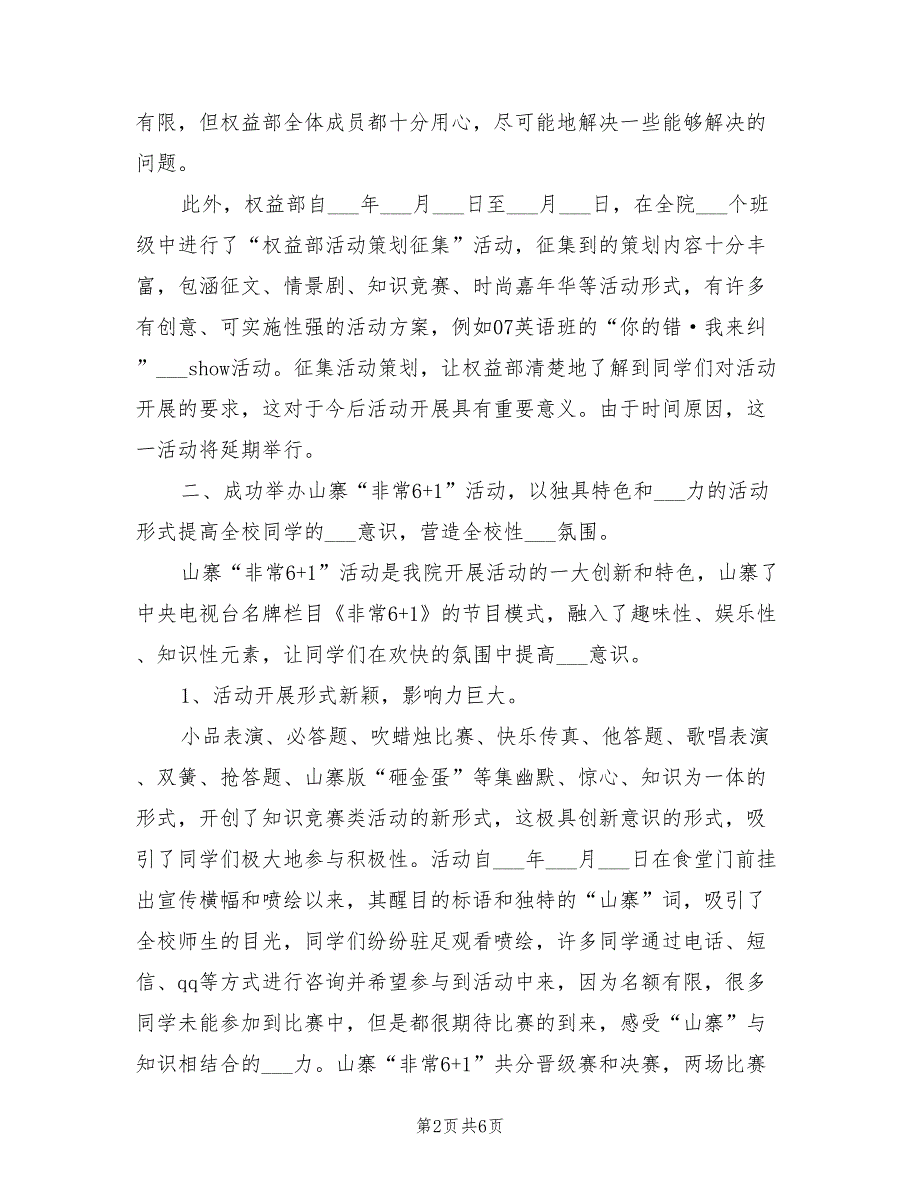 有限，但权益部全体成员都十分用心，尽可能地解决一些能够解决的
问题。
此外，权益部自___年___月___日至___月___日，在全院___个班
级中进行了“权益部活动策划征集”活动，征集到的策划内容十分丰
富，包涵征文、情景剧、知识竞赛、时尚嘉年华等活动形式，有许多
有创意、可实施性强的活动方案，例如07英语班的“你的错·我来纠
”___show活动。征集活动策划，让权益部清楚地了解到同学们对活动
开展的要求，这对于今后活动开展具有重要意义。由于时间原因，这
一活动将延期举行。
二、成功举办山寨“非常6+1”活动，以独具特色和___力的活动
形式提高全校同学的___意识，营造全校性___氛围。
山寨“非常6+1”活动是我院开展活动的一大创新和特色，山寨了
中央电视台名牌栏目《非常6+1》的节目模式，融入了趣味性、娱乐性
、知识性元素，让同学们在欢快的氛围中提高___意识。
1、活动开展形式新颖，影响力巨大。
小品表演、必答题、吹蜡烛比赛、快乐传真、他答题、歌唱表演
、双簧、抢答题、山寨版“砸金蛋”等集幽默、惊心、知识为一体的
形式，开创了知识竞赛类活动的新形式，这极具创新意识的形式，吸
引了同学们极大地参与积极性。活动自___年___月___日在食堂门前挂
出宣传横幅和喷绘以来，其醒目的标语和独特的“山寨”词，吸引了
全校师生的目光，同学们纷纷驻足观看喷绘，许多同学通过电话、短
信、qq等方式进行咨询并希望参与到活动中来，因为名额有限，很多
同学未能参加到比赛中，但是都很期待比赛的到来，感受“山寨”与
知识相结合的___力。山寨“非常6+1”共分晋级赛和决赛，两场比赛
第2页共6页